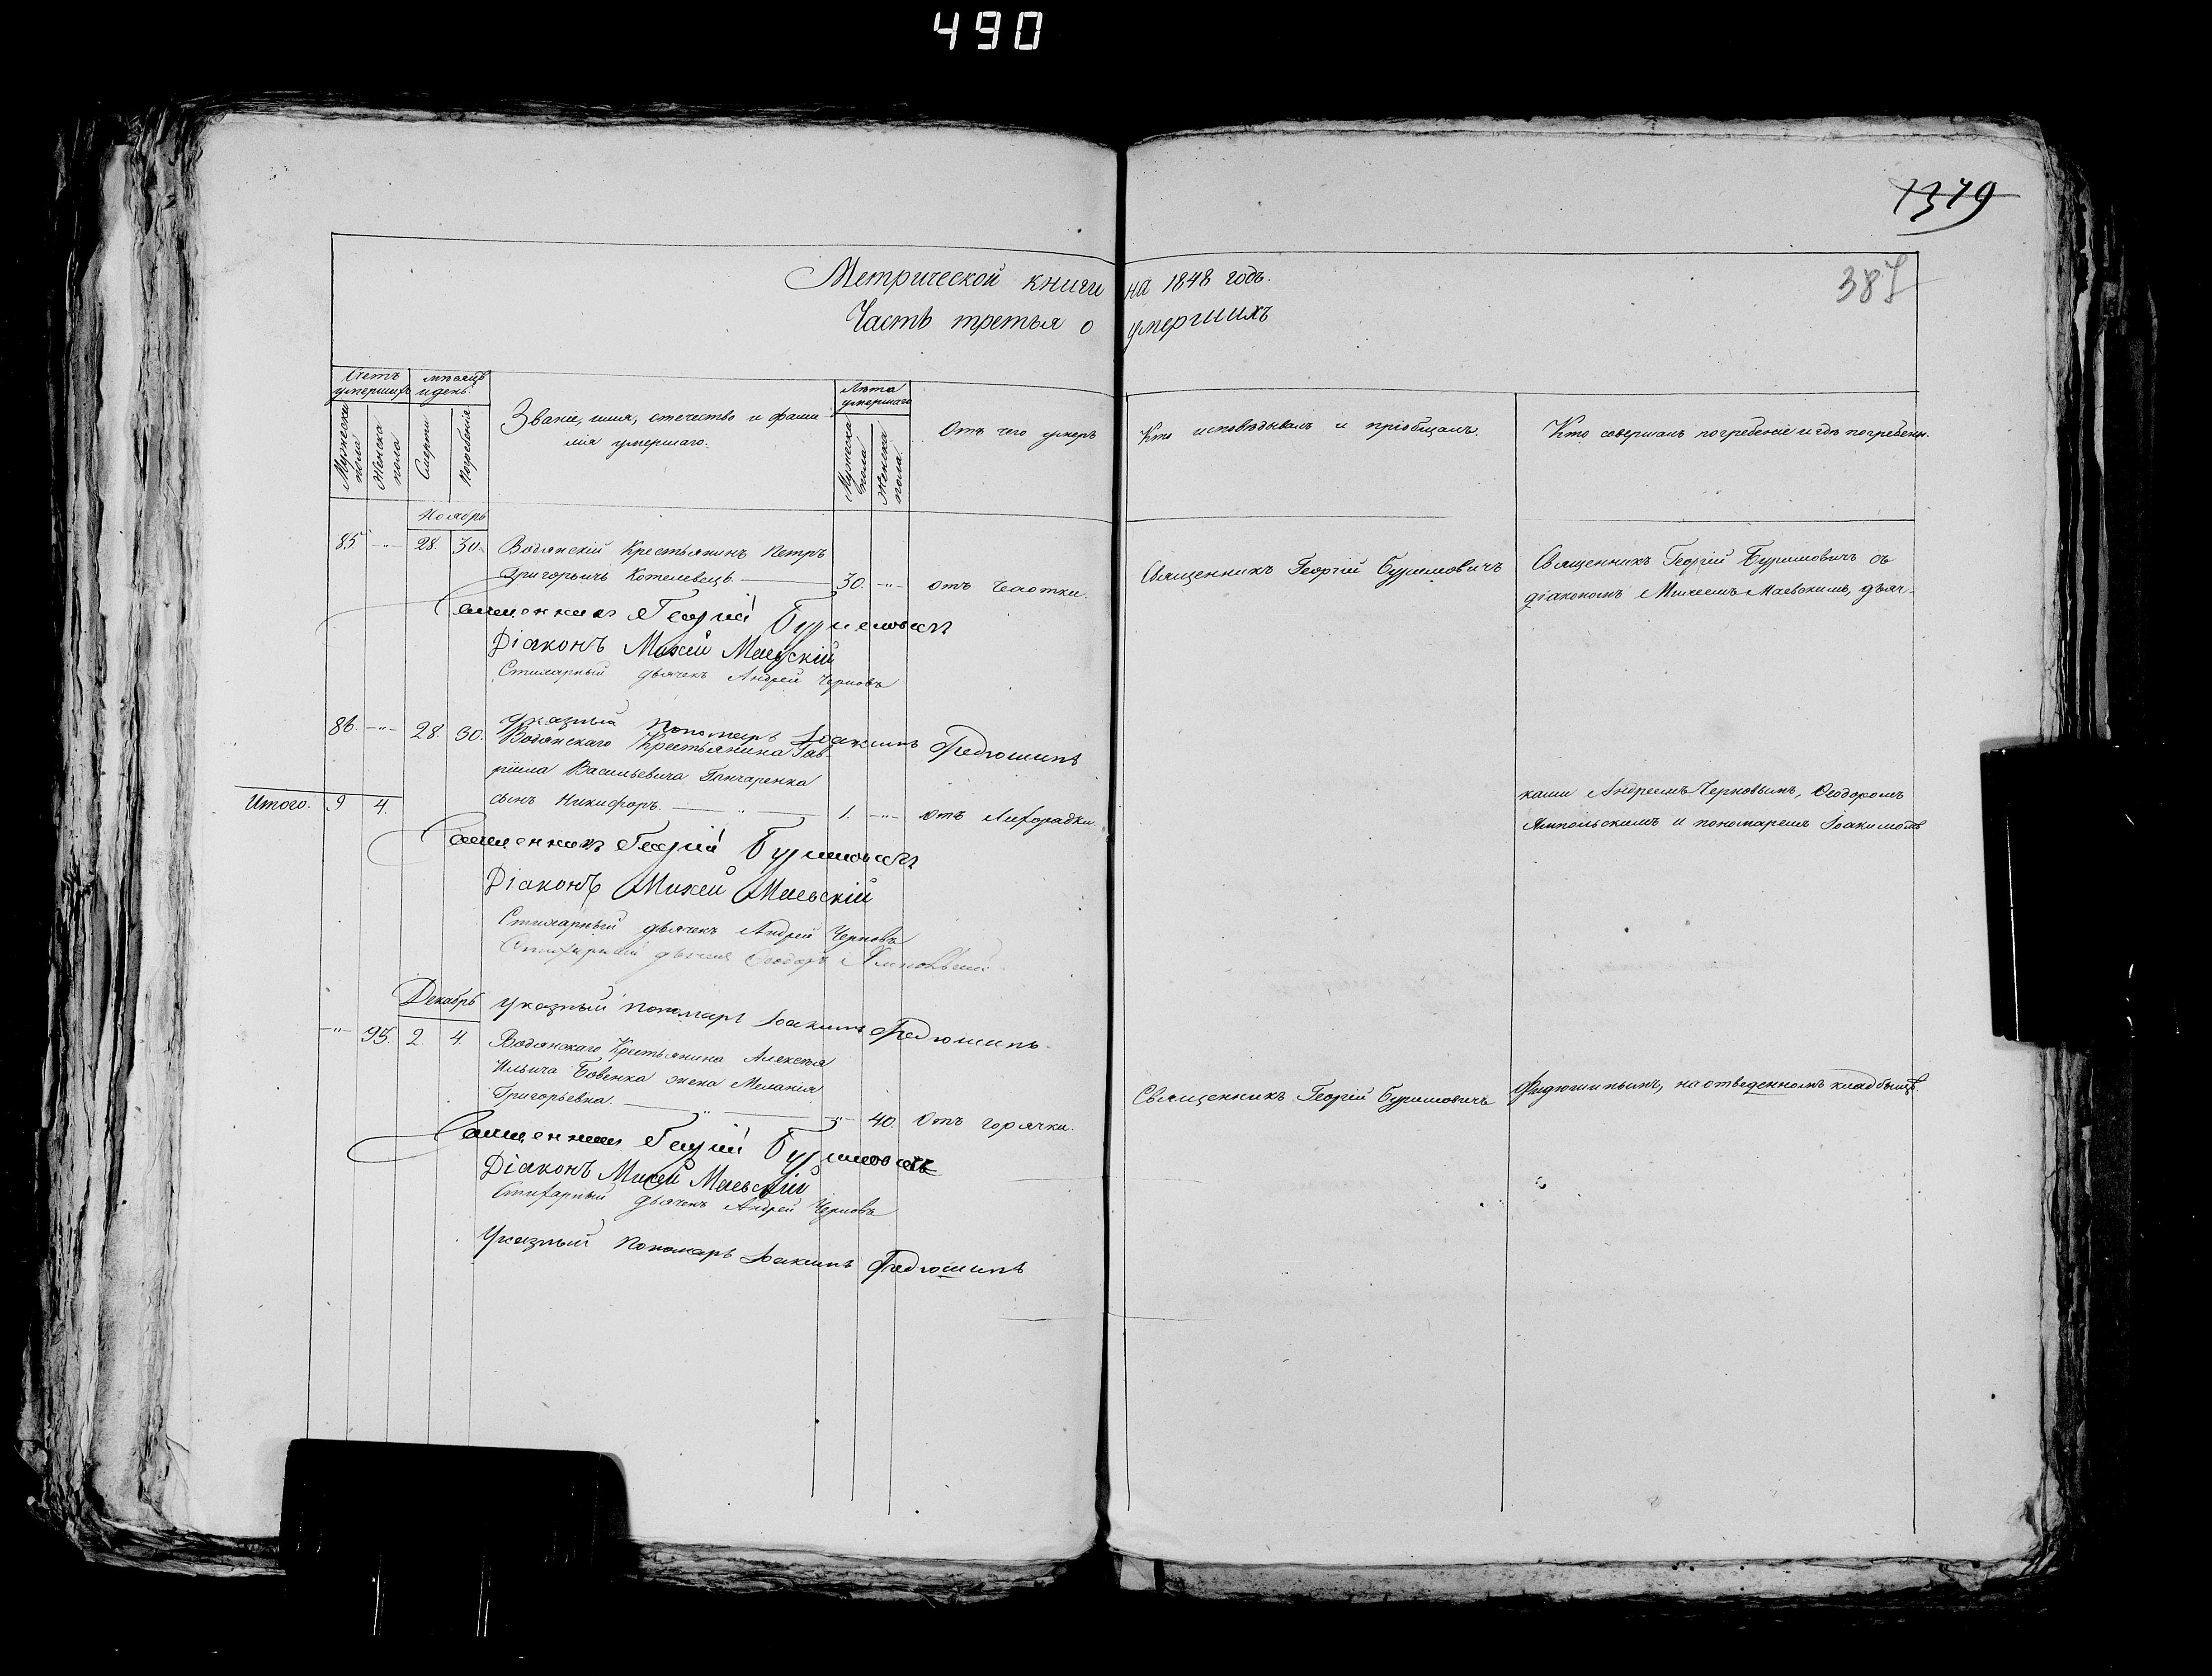 490
1379
387
Метрической книги на 1848 годъ.
Часть третья о умершихъ
Счетъ умершихъ
Мужеска пола
Женска пола
мѣсяцъ и день.
Смерти
Погребенія
Званіе, имя, отечество и фами-
лія умершаго.
Лѣта умершаго
Мужеска пола
Женска пола.
Отъ чего умеръ
Кто исповѣдывалъ и пріобщалъ.
Кто совершалъ погребеніе и гдѣ погребены.
Ноябрь
85. -"- 28. 30. Водянскій Крестьянинъ Петръ
Григорьичъ Котелевецъ. 30. -"- отъ Чахотки.
Священникъ Георгій Буримовичъ
Священникъ Георгій Буримовичъ съ
діакономъ Михеемъ Маевскимъ, дьяч-
Священникъ Георгій Буримовичъ
Діаконъ Михей Маевскій
Стихарный дьячекъ Андрей Черновъ
Указный Пономарь Іоакимъ Федюшинъ
86. -"- 28. 30. Водянскаго Крестьянина Гав-
ріила Васильевича Гончаренка
сынъ Никифоръ. " 1. -"- отъ Лихорадки.
Итого. 9 4.
ками Андреемъ Черновымъ, Ѳеодоромъ
Ямпольскимъ и пономаремъ Іоакимомъ
Священникъ Георгій Буримовичъ
Діаконъ Михей Маевскій
Стихарный дьячекъ Андрей Черновъ
Стихарный дьячекъ Ѳеодоръ Ямпольскій
Указный Пономарь Іоакимъ Федюшинъ
Декабрь
-"- 95. 2. 4. Водянскаго Крестьянина Алексѣя
Ильича Бовенка жена Меланія
Григорьевна. " -"- 40. Отъ горячки.
Священникъ Георгій Буримовичъ
Федюшинымъ, на отведенномъ кладбищѣ
Священникъ Георгій Буримовичъ
Діаконъ Михей Маевскій
Стихарный дьячекъ Андрей Черновъ
Указный Пономарь Іоакимъ Федюшинъ